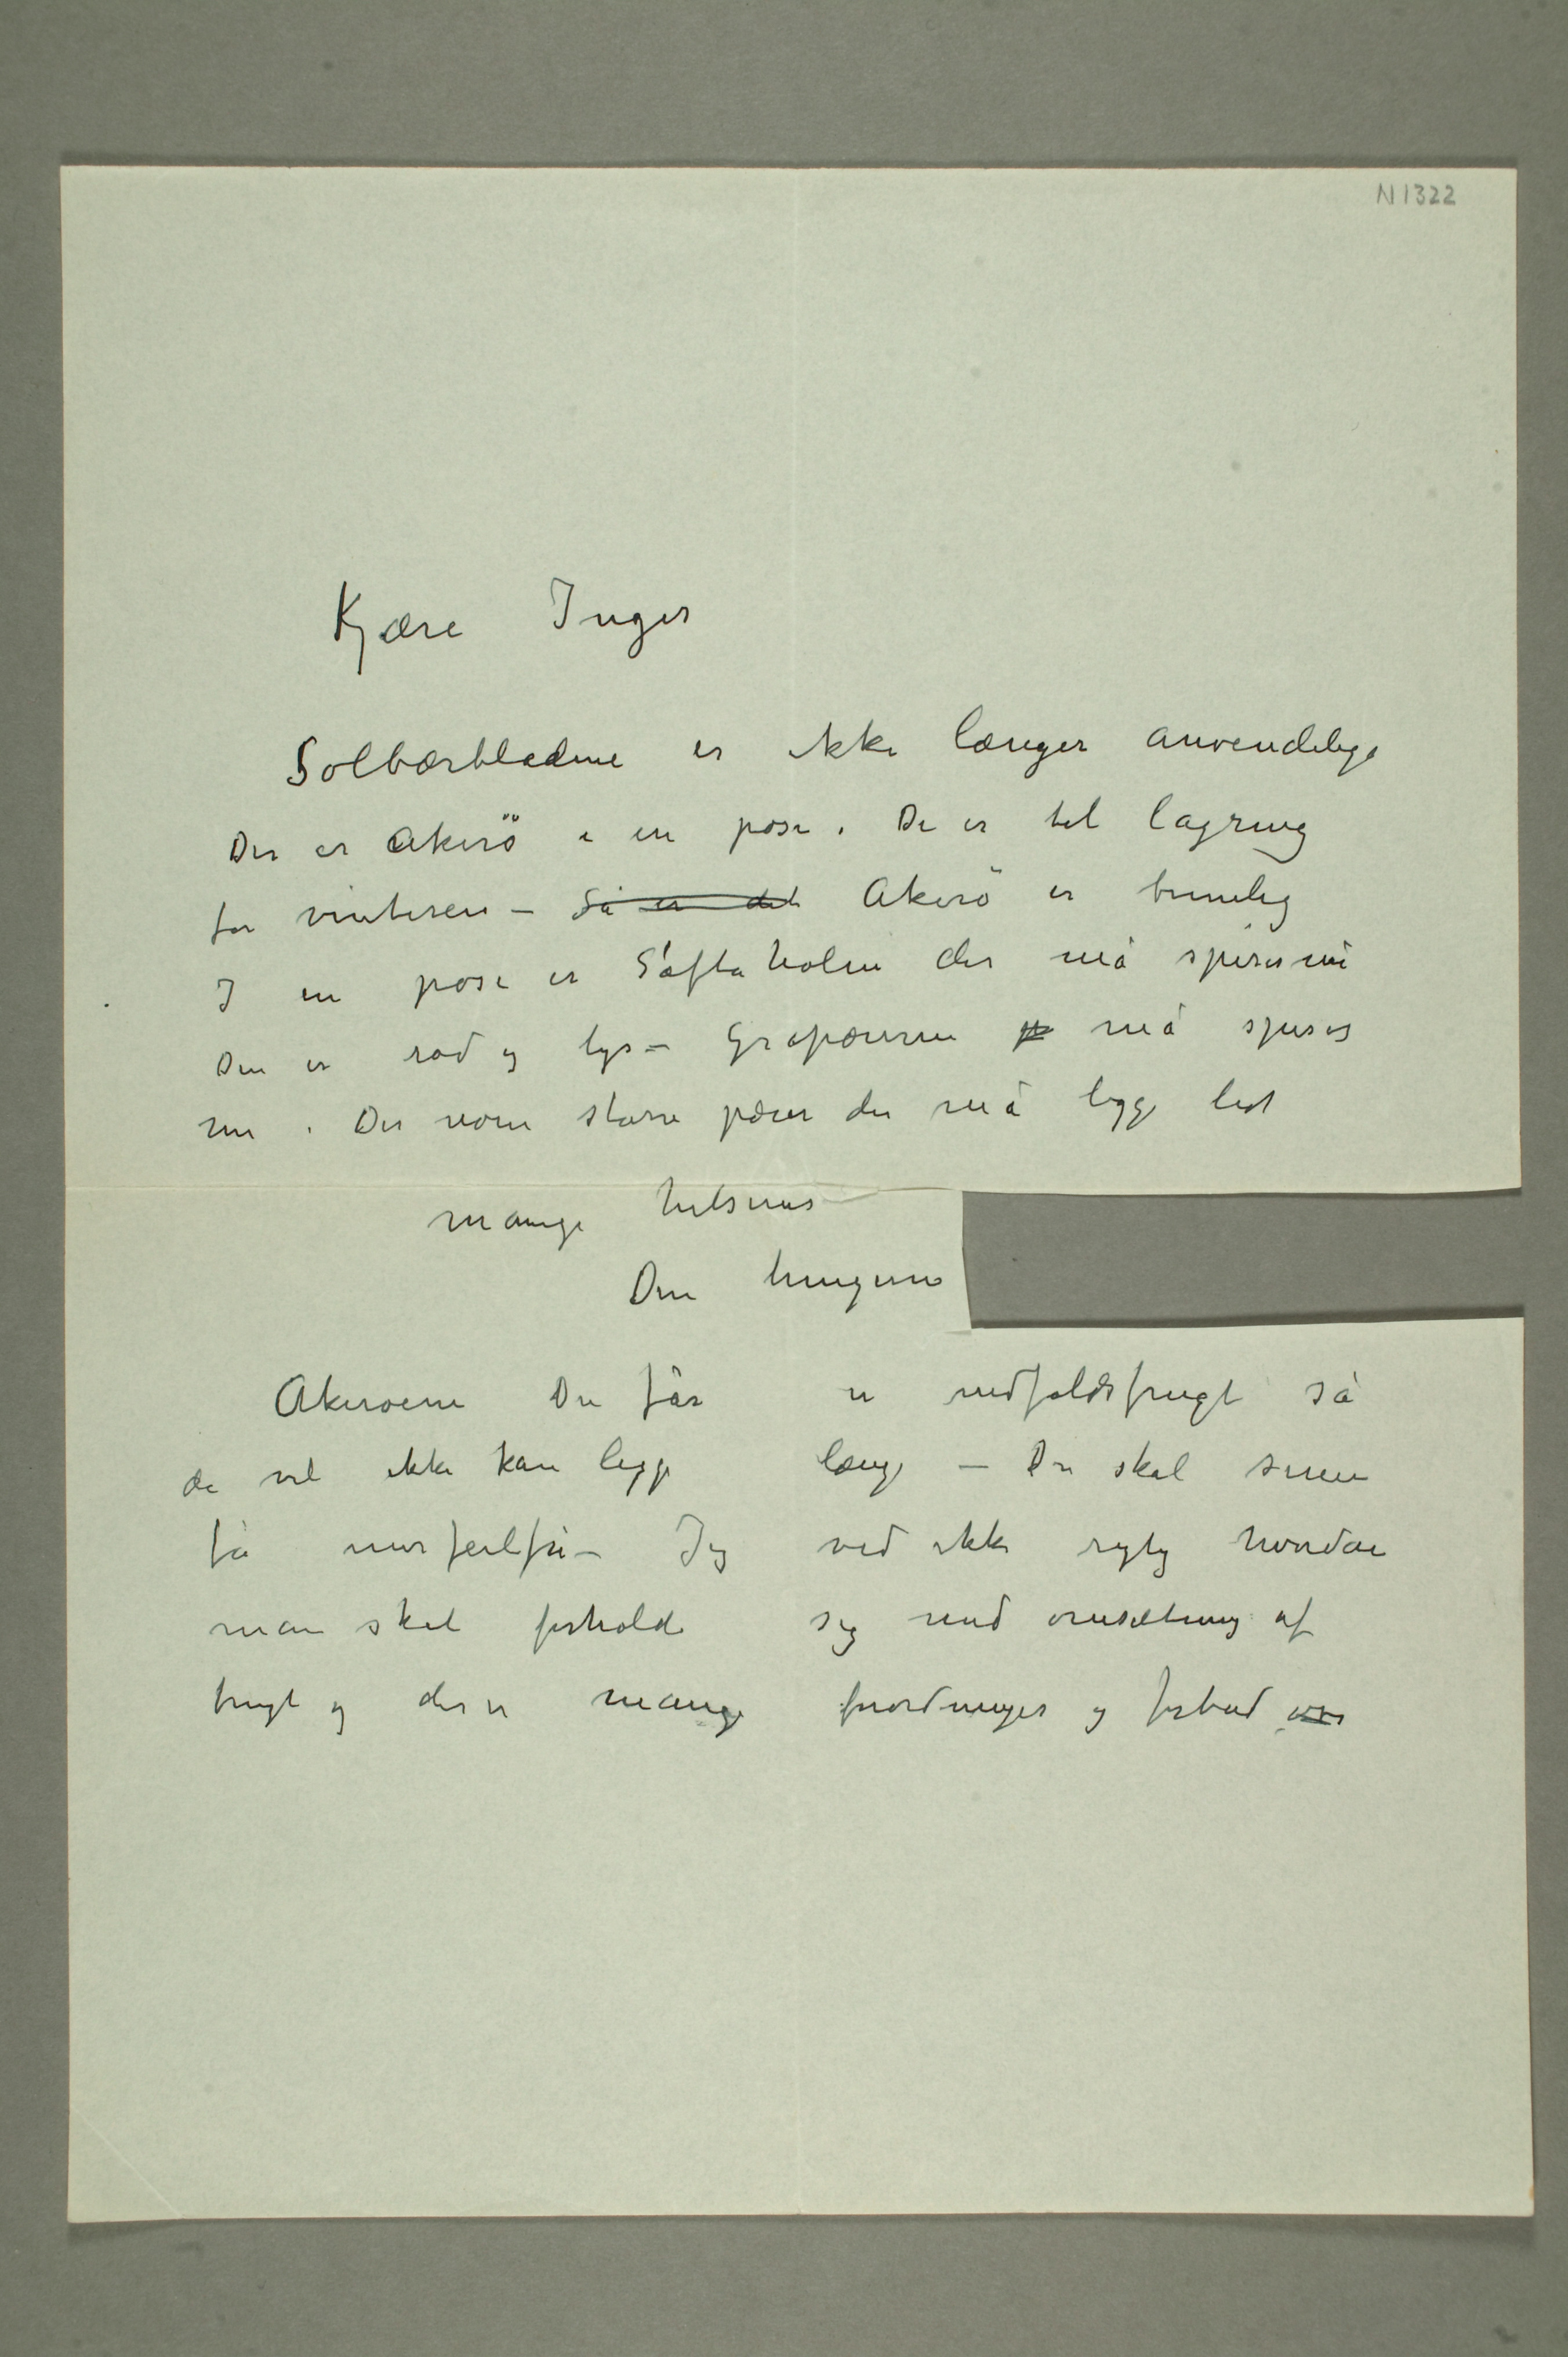 N 1322
Kjære Inger
Solbærbladene er ikke længer anvendelige
Der er Akerö i en pose. De er til lagring
for vinteren – Så er det Akerö er brunlig
I en pose er Säftaholm der må spises nu
Den er rød og lys – Gråpærerne må spises
nu. Der være større pærer der må ligge lidt
mange hilsener
Din hengivne
Akeroerne Du får er nedfaldsfrugt så
de vel ikke kan ligge længe – Du skal senere
få mer feilfri – Jeg ved ikke rigtig hvordan
man skal forholde sig med omsætning af
frugt og der er mange forordninger og forbud